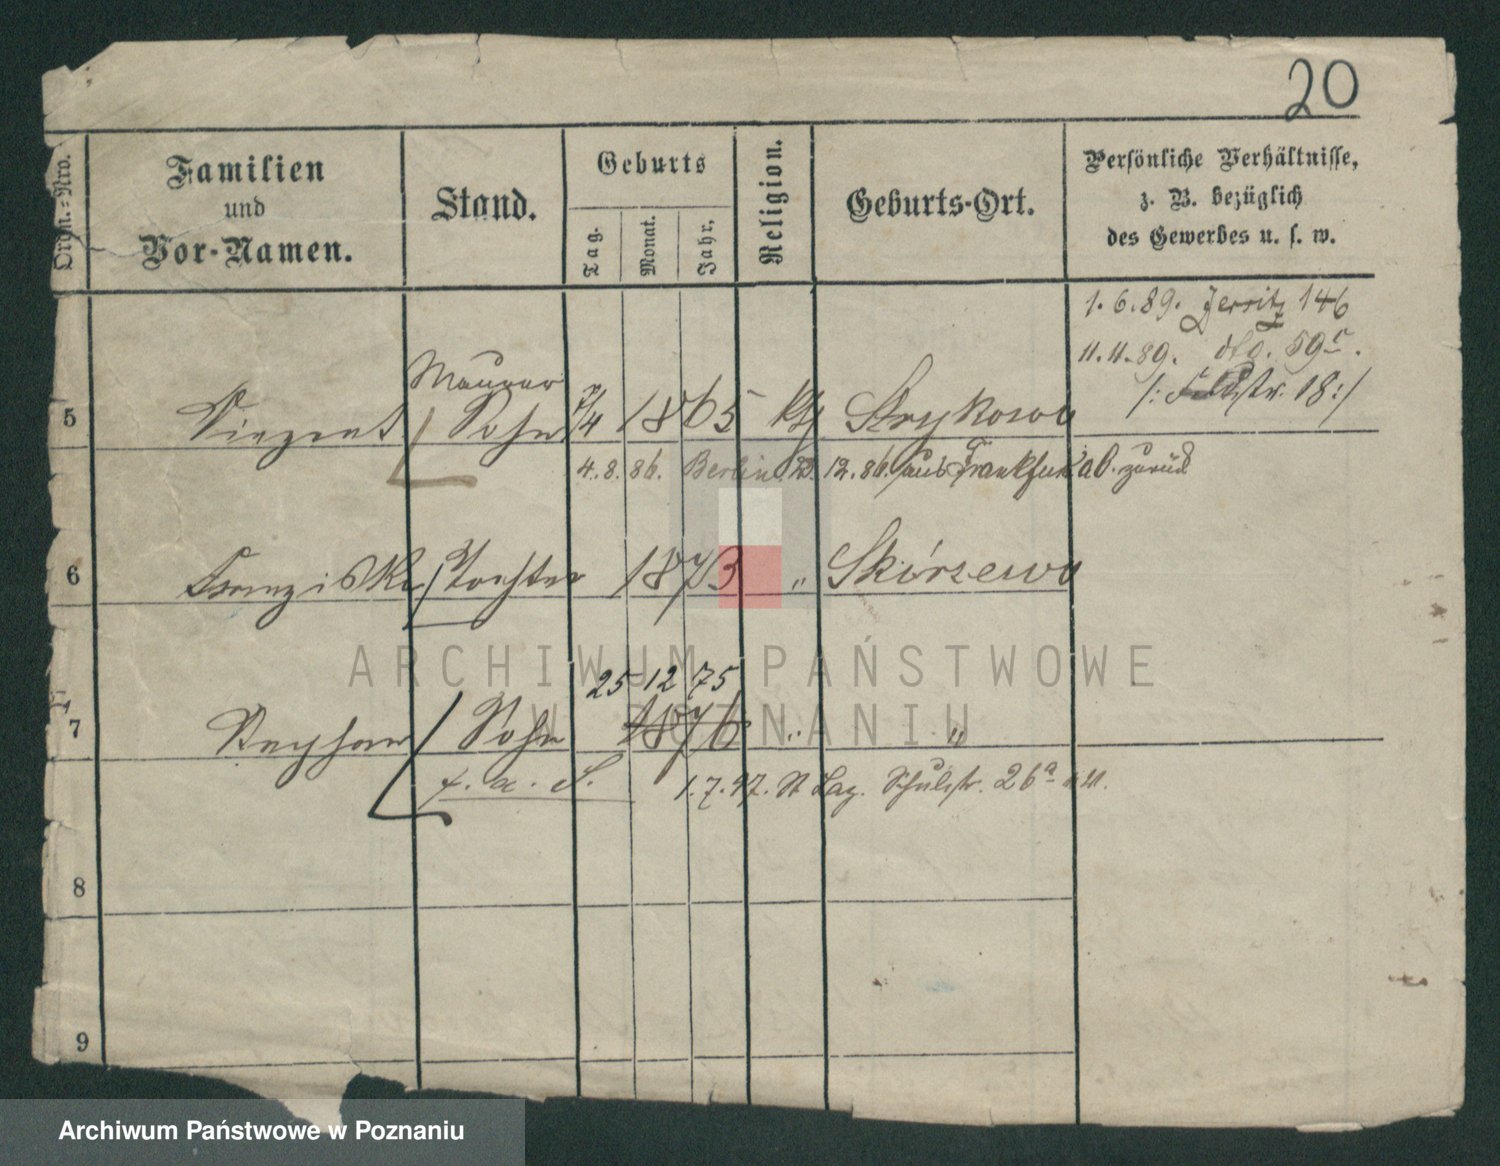 20
Ordn.-Nro.
Familien
und
Vor-Namen.
Stand.
Geburts
Tag.
Monat.
Jahr,
Religion.
Geburts-Ort.
Persönliche Verhältnisse,
z. B. bezüglich
des Gewerbes u. s. w.
1.6.89. Jersitz 146
11.11.89. dto. 59
18:/
Maurer
5 Vinzent Sohn 7/4 1865 kth Strykowo
4.8.86. Berlin 12.86. aus Frankfurt a/O. zurück
6 Franziska Tochter 1873 " Skórzewo
25 12 75
7 Stephan Sohn 1876 " "
1.7.97. St Laz. Schulstr. 26a
8
9
ARCHIWUM PAŃSTWOWE
W POZNANIU
Archiwum Państwowe w Poznaniu